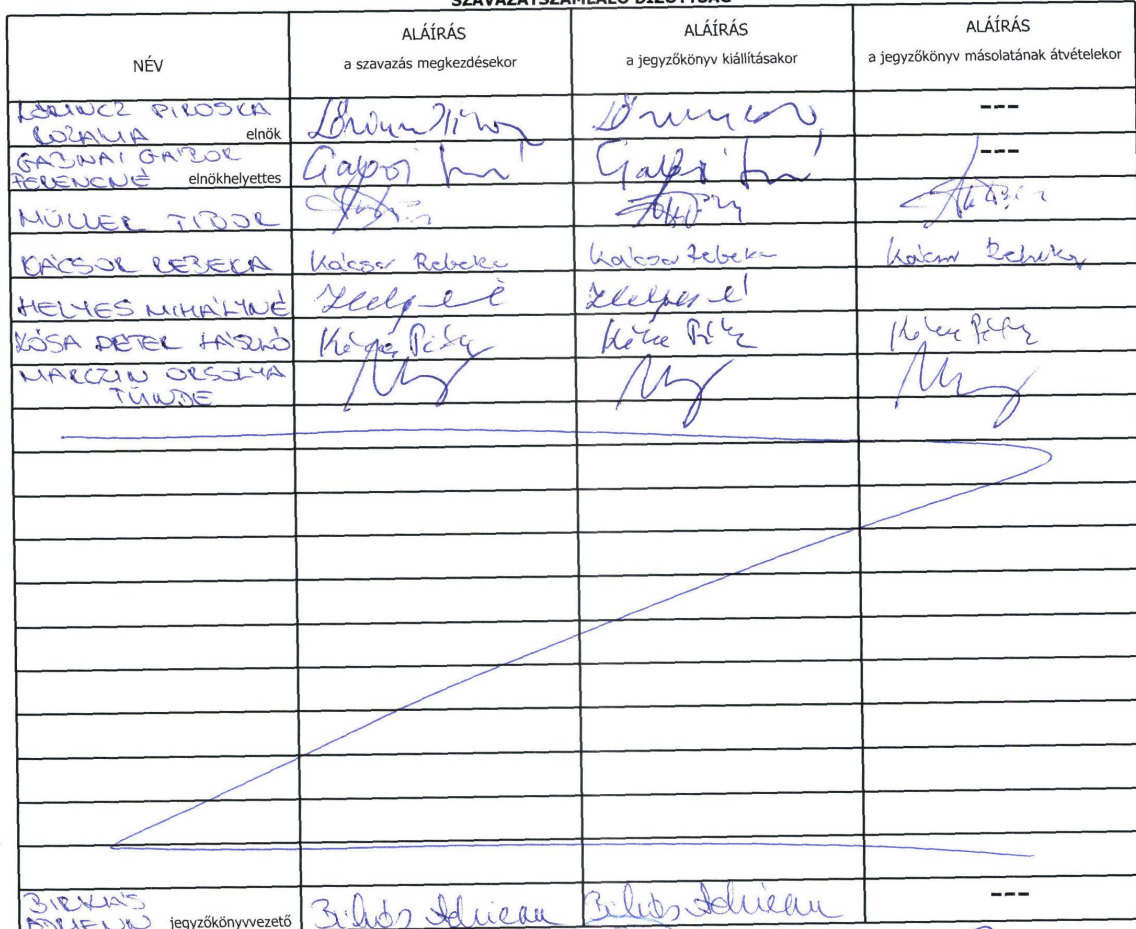 SZAVAZATSZÁMLÁLÓ BIZOTTSÁG
NÉV
ALÁÍRÁS
a szavazás megkezdésekor
ALÁÍRÁS
a jegyzőkönyv kiállításakor
ALÁÍRÁS
a jegyzőkönyv másolatának átvételekor
LŐRINCZ PIROSKA
ROZALIA elnök
---
GÁBOR
FERENCNÉ elnökhelyettes
---
MÜLLER TIBOR
KÁCSOR REBEKA Kácsor Rebeka Kácsor Rebeka Kácsor Rebeka
HELYES MIHÁLYNÉ
KÓSA PÉTER LÁSZLÓ
MARCZIN ORSOLYA
TÜNDE
BIRKÁS
ADRIENN jegyzőkönyvvezető Birkás Adrienn Birkás Adrienn ---